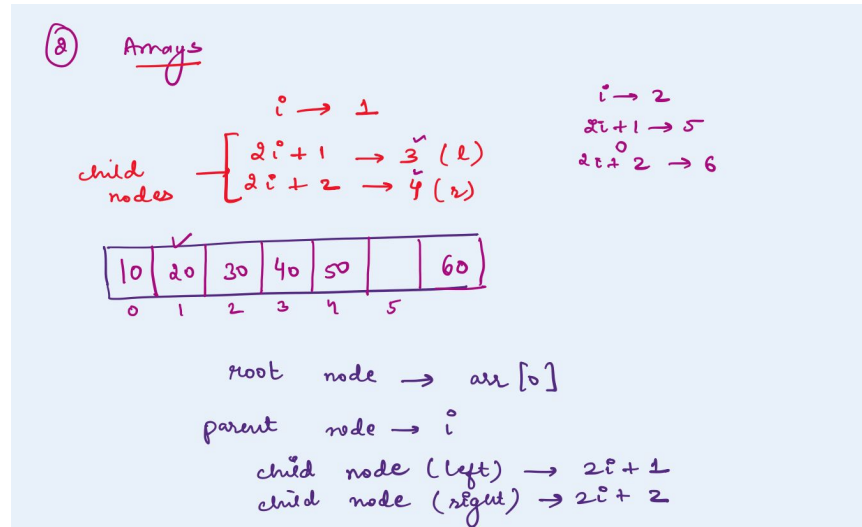 ② Arrays
i → 1
child nodes
2i + 1 → 3 (l)
2i + 2 → 4 (r)
i → 2
2i+1 → 5
2i+2 → 6
10 20 30 40 50 60
0 1 2 3 4 5
root node → arr [0]
parent node → i
child node (left) → 2i + 1
child node (right) → 2i + 2